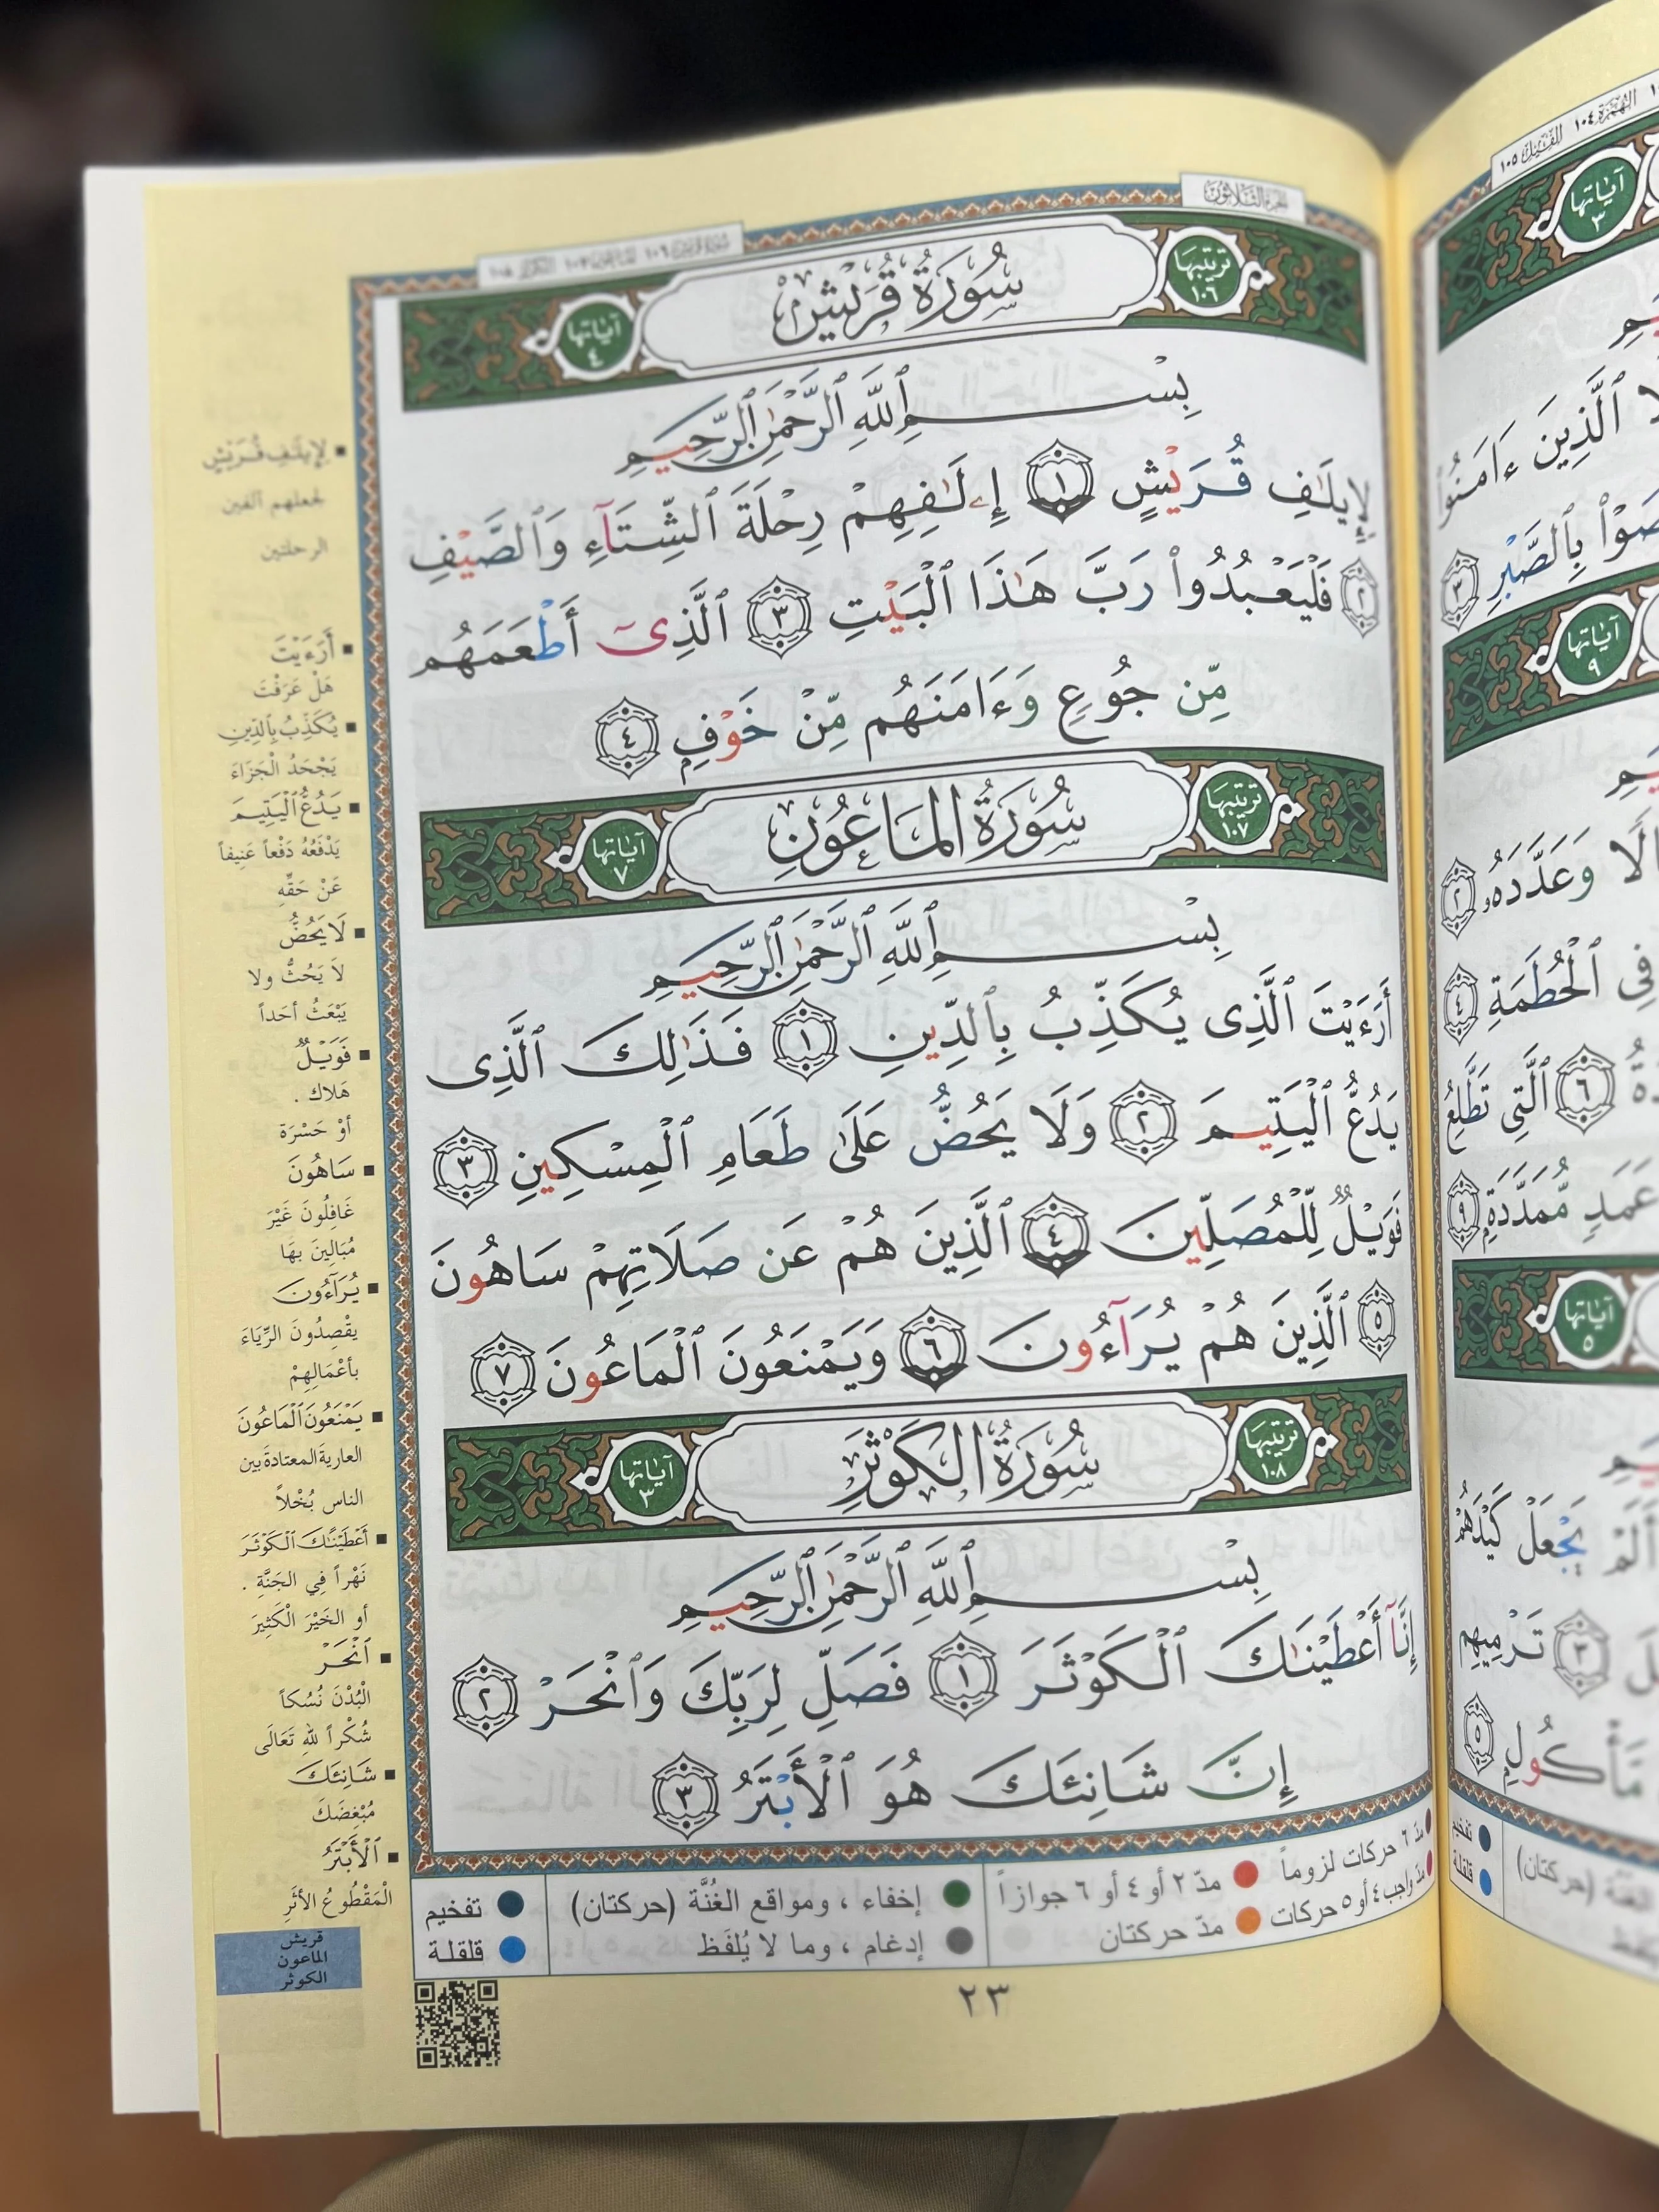 الجزء الثلاثون
سورة قريش ١٠٦ الماعون ١٠٧ الكوثر ١٠٨
ترتيبها ١٠٦
سُورَةُ قُرَيْشٍ
آياتها ٤
بِسْمِ ٱللَّهِ ٱلرَّحْمَٰنِ ٱلرَّحِيمِ
لِإِيلَٰفِ قُرَيْشٍ ١ إِۦلَٰفِهِمْ رِحْلَةَ ٱلشِّتَآءِ وَٱلصَّيْفِ
٢ فَلْيَعْبُدُوا۟ رَبَّ هَٰذَا ٱلْبَيْتِ ٣ ٱلَّذِىٓ أَطْعَمَهُم
مِّن جُوعٍ وَءَامَنَهُم مِّنْ خَوْفٍۭ ٤
ترتيبها ١٠٧
سُورَةُ المَاعُونِ
آياتها ٧
بِسْمِ ٱللَّهِ ٱلرَّحْمَٰنِ ٱلرَّحِيمِ
أَرَءَيْتَ ٱلَّذِى يُكَذِّبُ بِٱلدِّينِ ١ فَذَٰلِكَ ٱلَّذِى
يَدُعُّ ٱلْيَتِيمَ ٢ وَلَا يَحُضُّ عَلَىٰ طَعَامِ ٱلْمِسْكِينِ ٣
فَوَيْلٌ لِّلْمُصَلِّينَ ٤ ٱلَّذِينَ هُمْ عَن صَلَاتِهِمْ سَاهُونَ
٥ ٱلَّذِينَ هُمْ يُرَآءُونَ ٦ وَيَمْنَعُونَ ٱلْمَاعُونَ ٧
ترتيبها ١٠٨
سُورَةُ الكَوْثَرِ
آياتها ٣
بِسْمِ ٱللَّهِ ٱلرَّحْمَٰنِ ٱلرَّحِيمِ
إِنَّآ أَعْطَيْنَٰكَ ٱلْكَوْثَرَ ١ فَصَلِّ لِرَبِّكَ وَٱنْحَرْ ٢
إِنَّ شَانِئَكَ هُوَ ٱلْأَبْتَرُ ٣
لِإِيلَٰفِ قُرَيْشٍ
لجعلهم آلفين
الرحلتين
أَرَءَيْتَ
هَلْ عَرَفْتَ
يُكَذِّبُ بِٱلدِّينِ
يَجْحَدُ الْجَزَاءَ
يَدُعُّ ٱلْيَتِيمَ
يَدْفَعُهُ دَفْعاً عَنِيفاً
عَنْ حَقِّهِ
لَا يَحُضُّ
لاَ يَحُثُّ ولا
يَبْعَثُ أحَداً
فَوَيْلٌ
هَلاك .
أوْ حَسْرَة
سَاهُونَ
غَافِلُونَ غَيْرَ
مُبَالِينَ بهَا
يُرَآءُونَ
يقْصِدُونَ الرِّيَاءَ
بأعْمَالِهِمْ
يَمْنَعُونَ ٱلْمَاعُونَ
العارية المعتادة بين
الناس بُخْلاً
أَعْطَيْنَٰكَ ٱلْكَوْثَرَ
نَهْراً فِي الجَنَّةِ .
أو الخَيْرَ الْكَثِيرَ
ٱنْحَرْ
الْبُدْنَ نُسُكاً
شُكْراً للهِ تَعَالَى
شَانِئَكَ
مُبْغِضَكَ
ٱلْأَبْتَرُ
الْمَقْطُوعُ الأثَرِ
مدّ ٦ حركات لزوماً
مدّ ٢ أو ٤ أو ٦ جوازاً
إخفاء ، ومواقع الغُنَّة (حركتان)
تفخيم
مدّ واجب ٤ أو ٥ حركات
مدّ حركتان
إدغام ، وما لا يُلفَظ
قلقلة
قريش
الماعون
الكوثر
٢٣
الهمزة ١٠٤ الفيل ١٠٥
آياتها ٣
ٱلَّذِينَ ءَامَنُوا۟
بِٱلصَّبْرِ ٣
آياتها ٩
وَعَدَّدَهُۥ ٢
فِى ٱلْحُطَمَةِ ٤
٦ ٱلَّتِى تَطَّلِعُ
عَمَدٍ مُّمَدَّدَةٍۭ ٩
آياتها ٥
أَلَمْ يَجْعَلْ كَيْدَهُمْ
٣ تَرْمِيهِم
مَّأْكُولٍۭ ٥
تفخيم
قلقلة